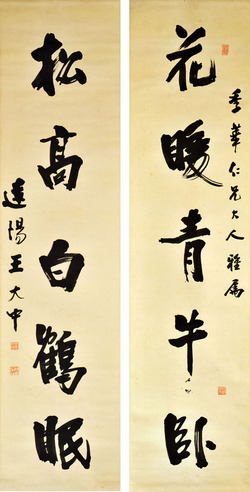 花暖青牛卧
季華仁兄大人雅屬
松高白鶴眠
遼陽王大中